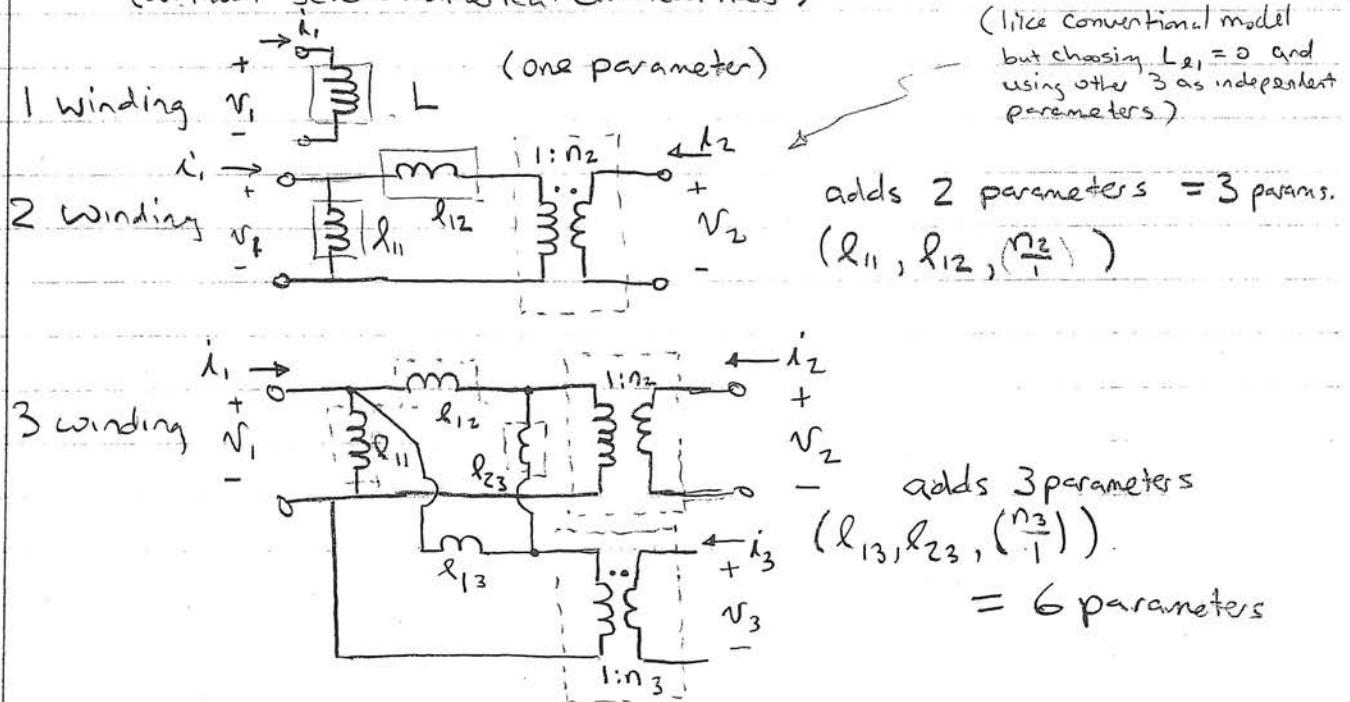 i₁
(one parameter)
(like conventional model
but choosing Lℓ₁ = 0 and
using other 3 as independent
parameters)
1 winding
+
v₁
-
L
2 winding
i₁
+
v₁
-
ℓ₁₁
ℓ₁₂
1:n₂
i₂
+
v₂
-
adds 2 parameters = 3 params.
(ℓ₁₁, ℓ₁₂, (n₂/1))
3 winding
i₁
+
v₁
-
ℓ₁₁
ℓ₁₂
ℓ₂₃
1:n₂
i₂
+
v₂
-
ℓ₁₃
i₃
+
v₃
-
1:n₃
adds 3 parameters
(ℓ₁₃, ℓ₂₃, (n₃/1)).
= 6 parameters